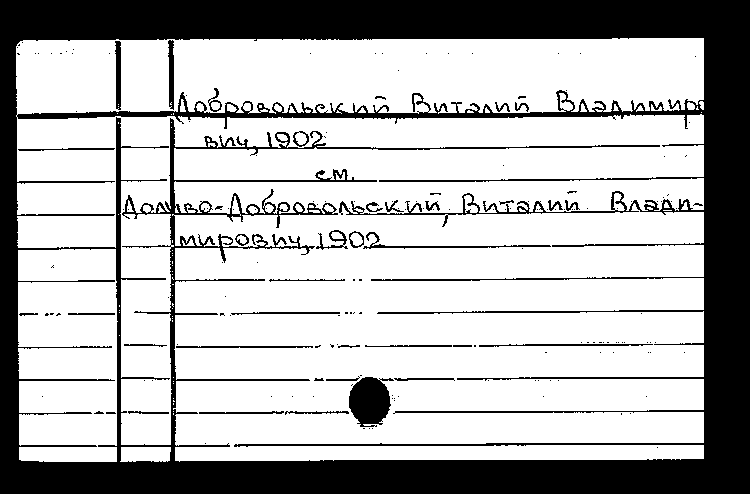 Добровольский, Виталий Владимиро
вич, 1902
см.
Доливо-Добровольский, Виталий Влади-
мирович, 1902